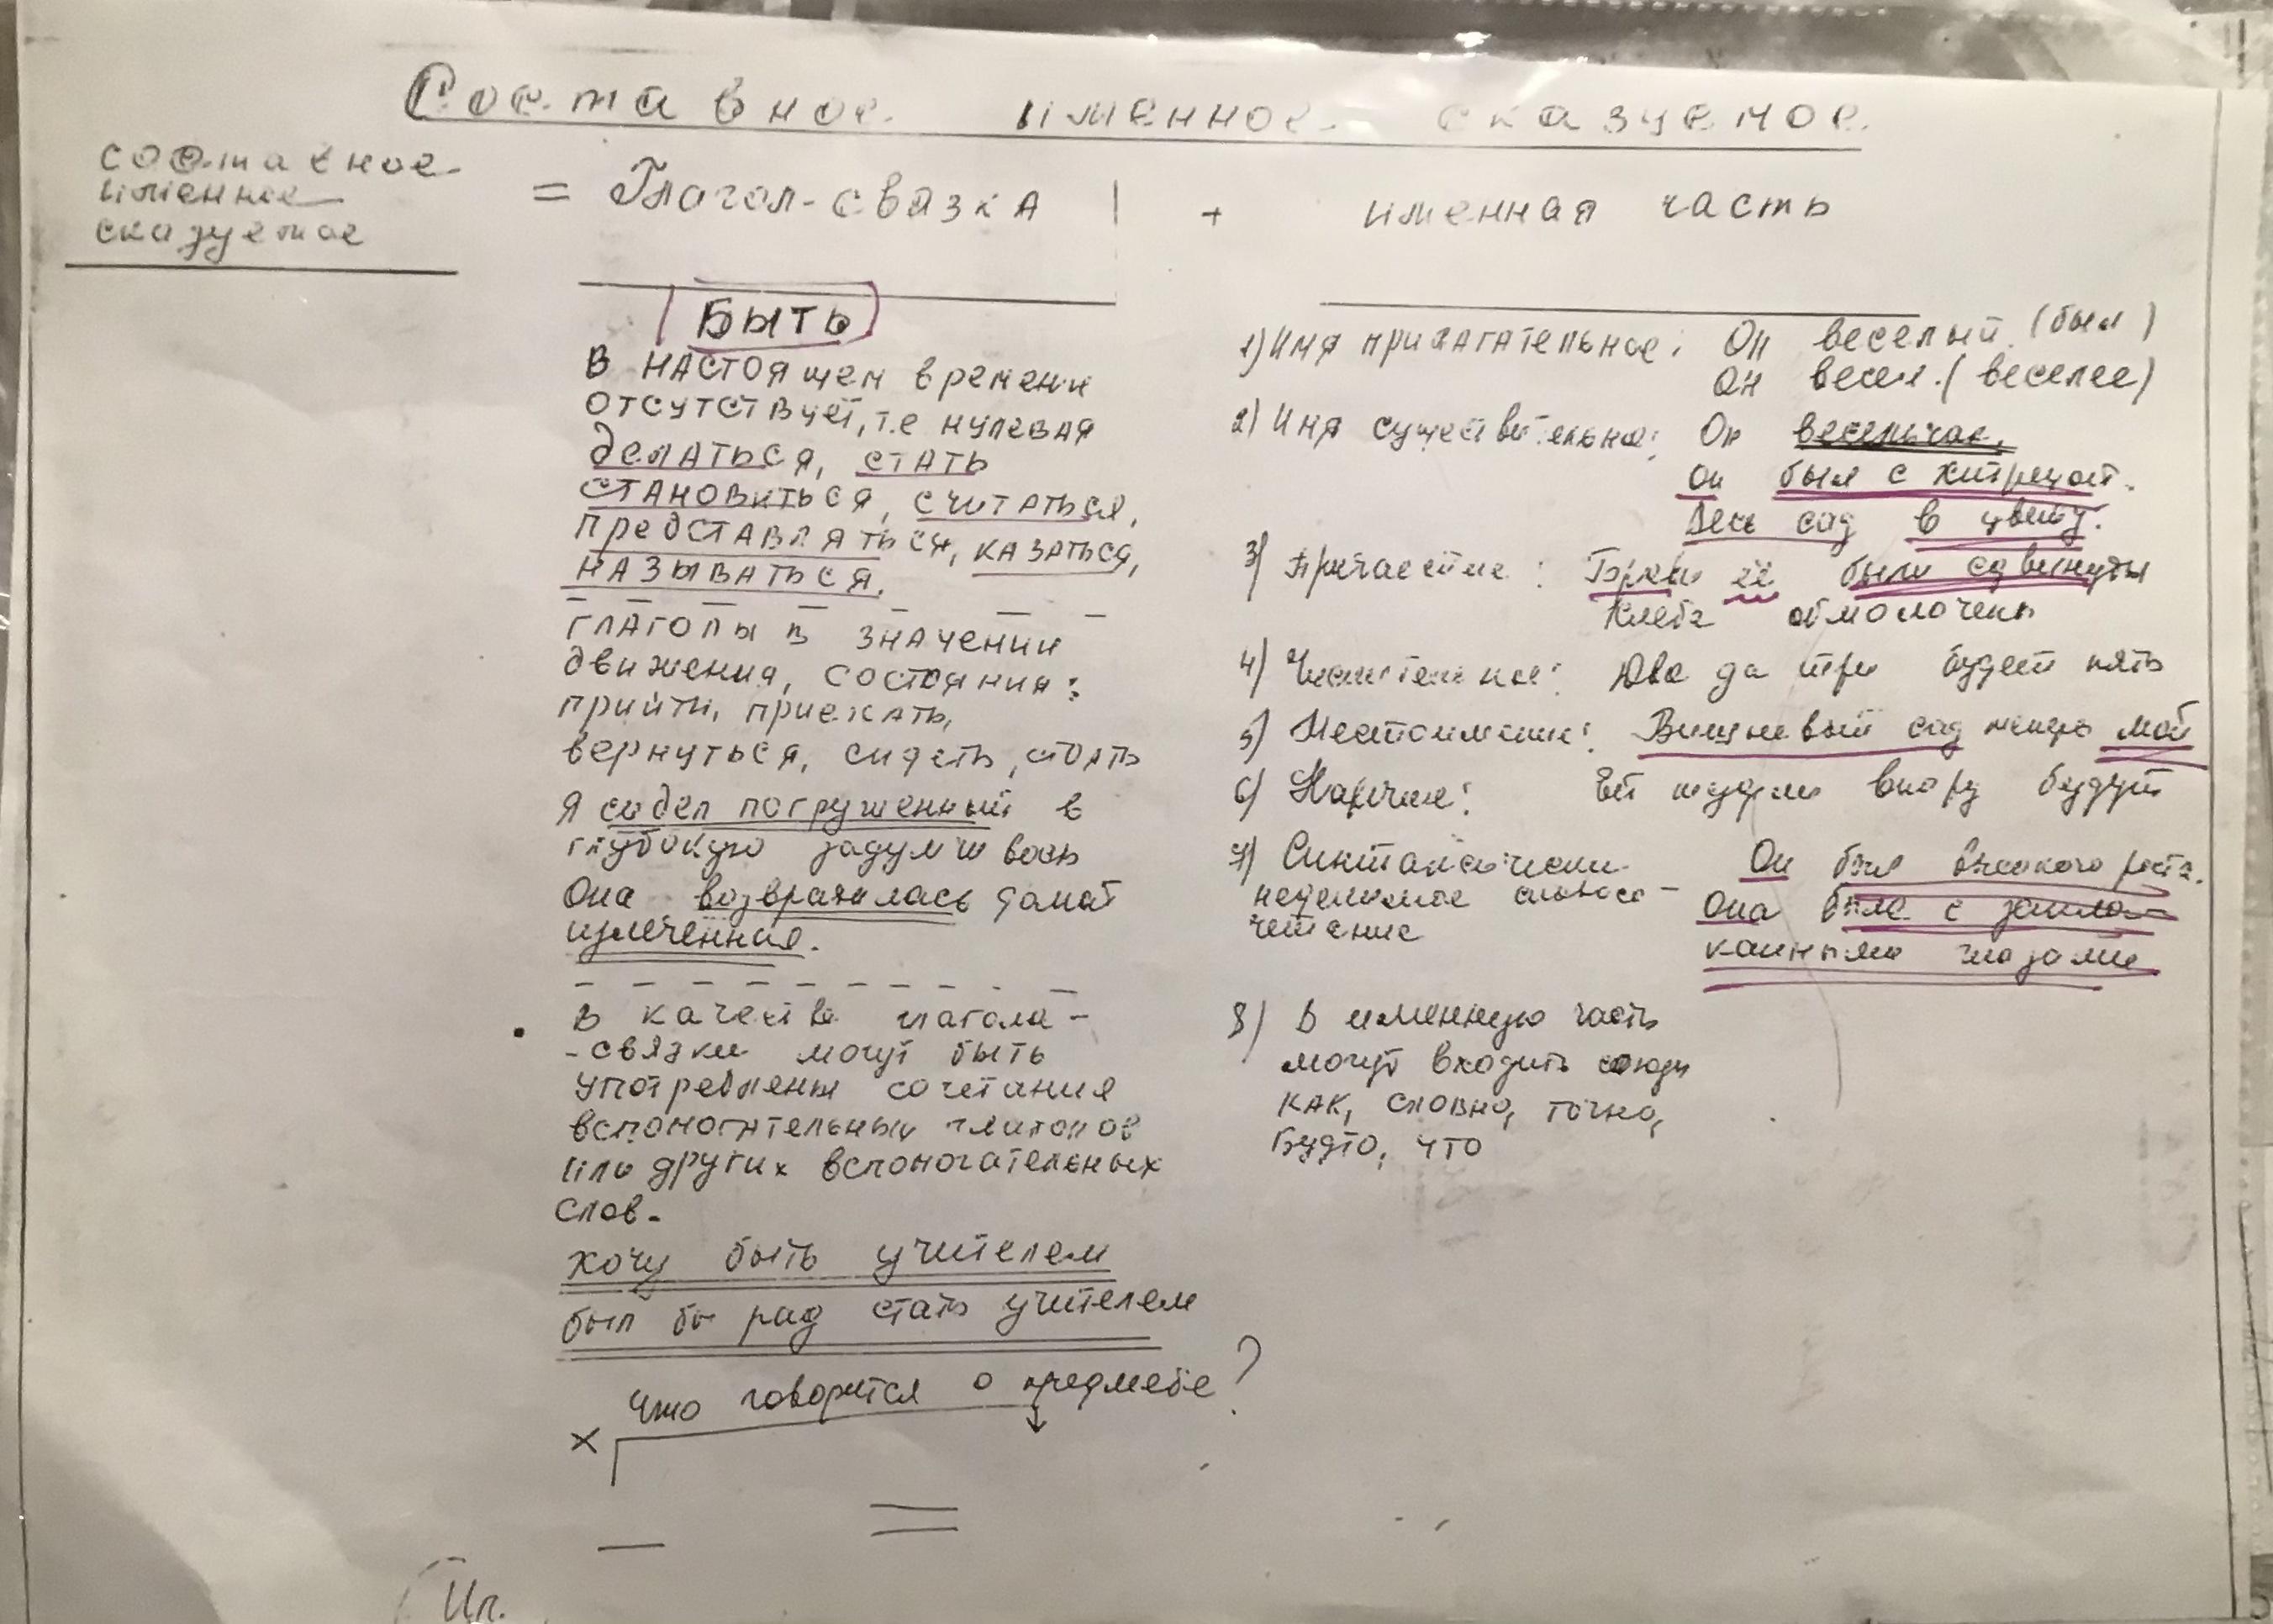 Составное именное сказуемое.
составное
именное
сказуемое
= Глагол-связка | + именная часть
БЫТЬ
В НАСТОЯщем времени
отсутствует, т.е нулевая
делаться, стать
становиться, считаться,
представляться, казаться,
называться.
глаголы в значении
движения, состояния:
прийти, приехать,
вернуться, сидеть, стоять
Я сидел погруженный в
глубокую задумчивость
Она возвратилась домой
излеченная.
В качестве глагола-
-связки могут быть
употреблены сочетания
вспомогательных глаголов
или других вспомогательных
слов.
хочу быть учителем
был бы рад стать учителем
что говорится о предмете?
×
1) Имя прилагательное: Он веселый. (был)
Он весел. (веселее)
2) Имя существительное: Он весельчак.
Он был с хитрецой.
Весь сад в цвету.
3) Причастие: Брови её были сдвинуты
Хлеба обмолочены
4) Числительное: Два да три будет пять
5) Местоимение: Вишневый сад теперь мой
6) Наречие: Ей туфли впору будут
7) Синтаксически Он был высокого роста.
неделимое словосо- Она была с запла-
четание канными глазами
8) В именную часть
могут входить союзы
как, словно, точно,
будто, что
Ип.